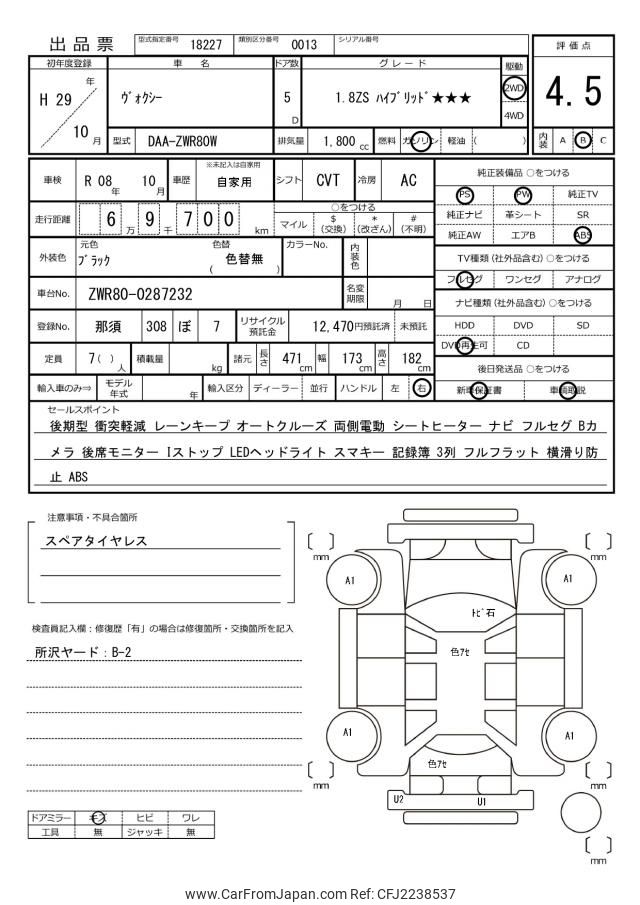 出品票 型式指定番号 18227 類別区分番号 0013 シリアル番号
評価点
4.5
内装 A B C
初年度登録 車名 ドア数 グレード 駆動
H 29 年 10 月 ヴォクシー 5 D 1.8ZS ハイブリッド★★★ 2WD 4WD
型式 DAA-ZWR80W 排気量 1,800 cc 燃料 ガソリン 軽油 ( )
車検 R 08 年 10 月 車歴 ※未記入は自家用 自家用 シフト CVT 冷房 AC
走行距離 6 万 9 千 7 0 0 km ○をつける
マイル $ (交換) * (改ざん) # (不明)
外装色 元色 ブラック 色替 ( 色替無 ) カラーNo. 内装色
車台No. ZWR80-0287232 名変期限 月 日
登録No. 那須 308 ぼ 7 リサイクル預託金 12,470円預託済 未預託
定員 7( ) 人 積載量 kg 諸元 長さ 471 cm 幅 173 cm 高さ 182 cm
輸入車のみ⇒ モデル年式 年 輸入区分 ディーラー 並行 ハンドル 左 右
純正装備品 ○をつける
PS PW 純正TV
純正ナビ 革シート SR
純正AW エアB ABS
TV種類 (社外品含む) ○をつける
フルセグ ワンセグ アナログ
ナビ種類 (社外品含む) ○をつける
HDD DVD SD
DVD再生可 CD
後日発送品 ○をつける
新車保証書 車輌取説
セールスポイント
後期型 衝突軽減 レーンキープ オートクルーズ 両側電動 シートヒーター ナビ フルセグ Bカ
メラ 後席モニター Iストップ LEDヘッドライト スマキー 記録簿 3列 フルフラット 横滑り防
止 ABS
注意事項・不具合箇所
スペアタイヤレス
検査員記入欄：修復歴「有」の場合は修復箇所・交換箇所を記入
所沢ヤード：B-2
ドアミラー キズ ヒビ ワレ
工具 無 ジャッキ 無
[ ] mm [ ] mm
A1 A1
トビ石
色アセ
A1 A1
色アセ
[ ] mm [ ] mm
U2 U1
[ ] mm
www.CarFromJapan.com Ref: CFJ2238537